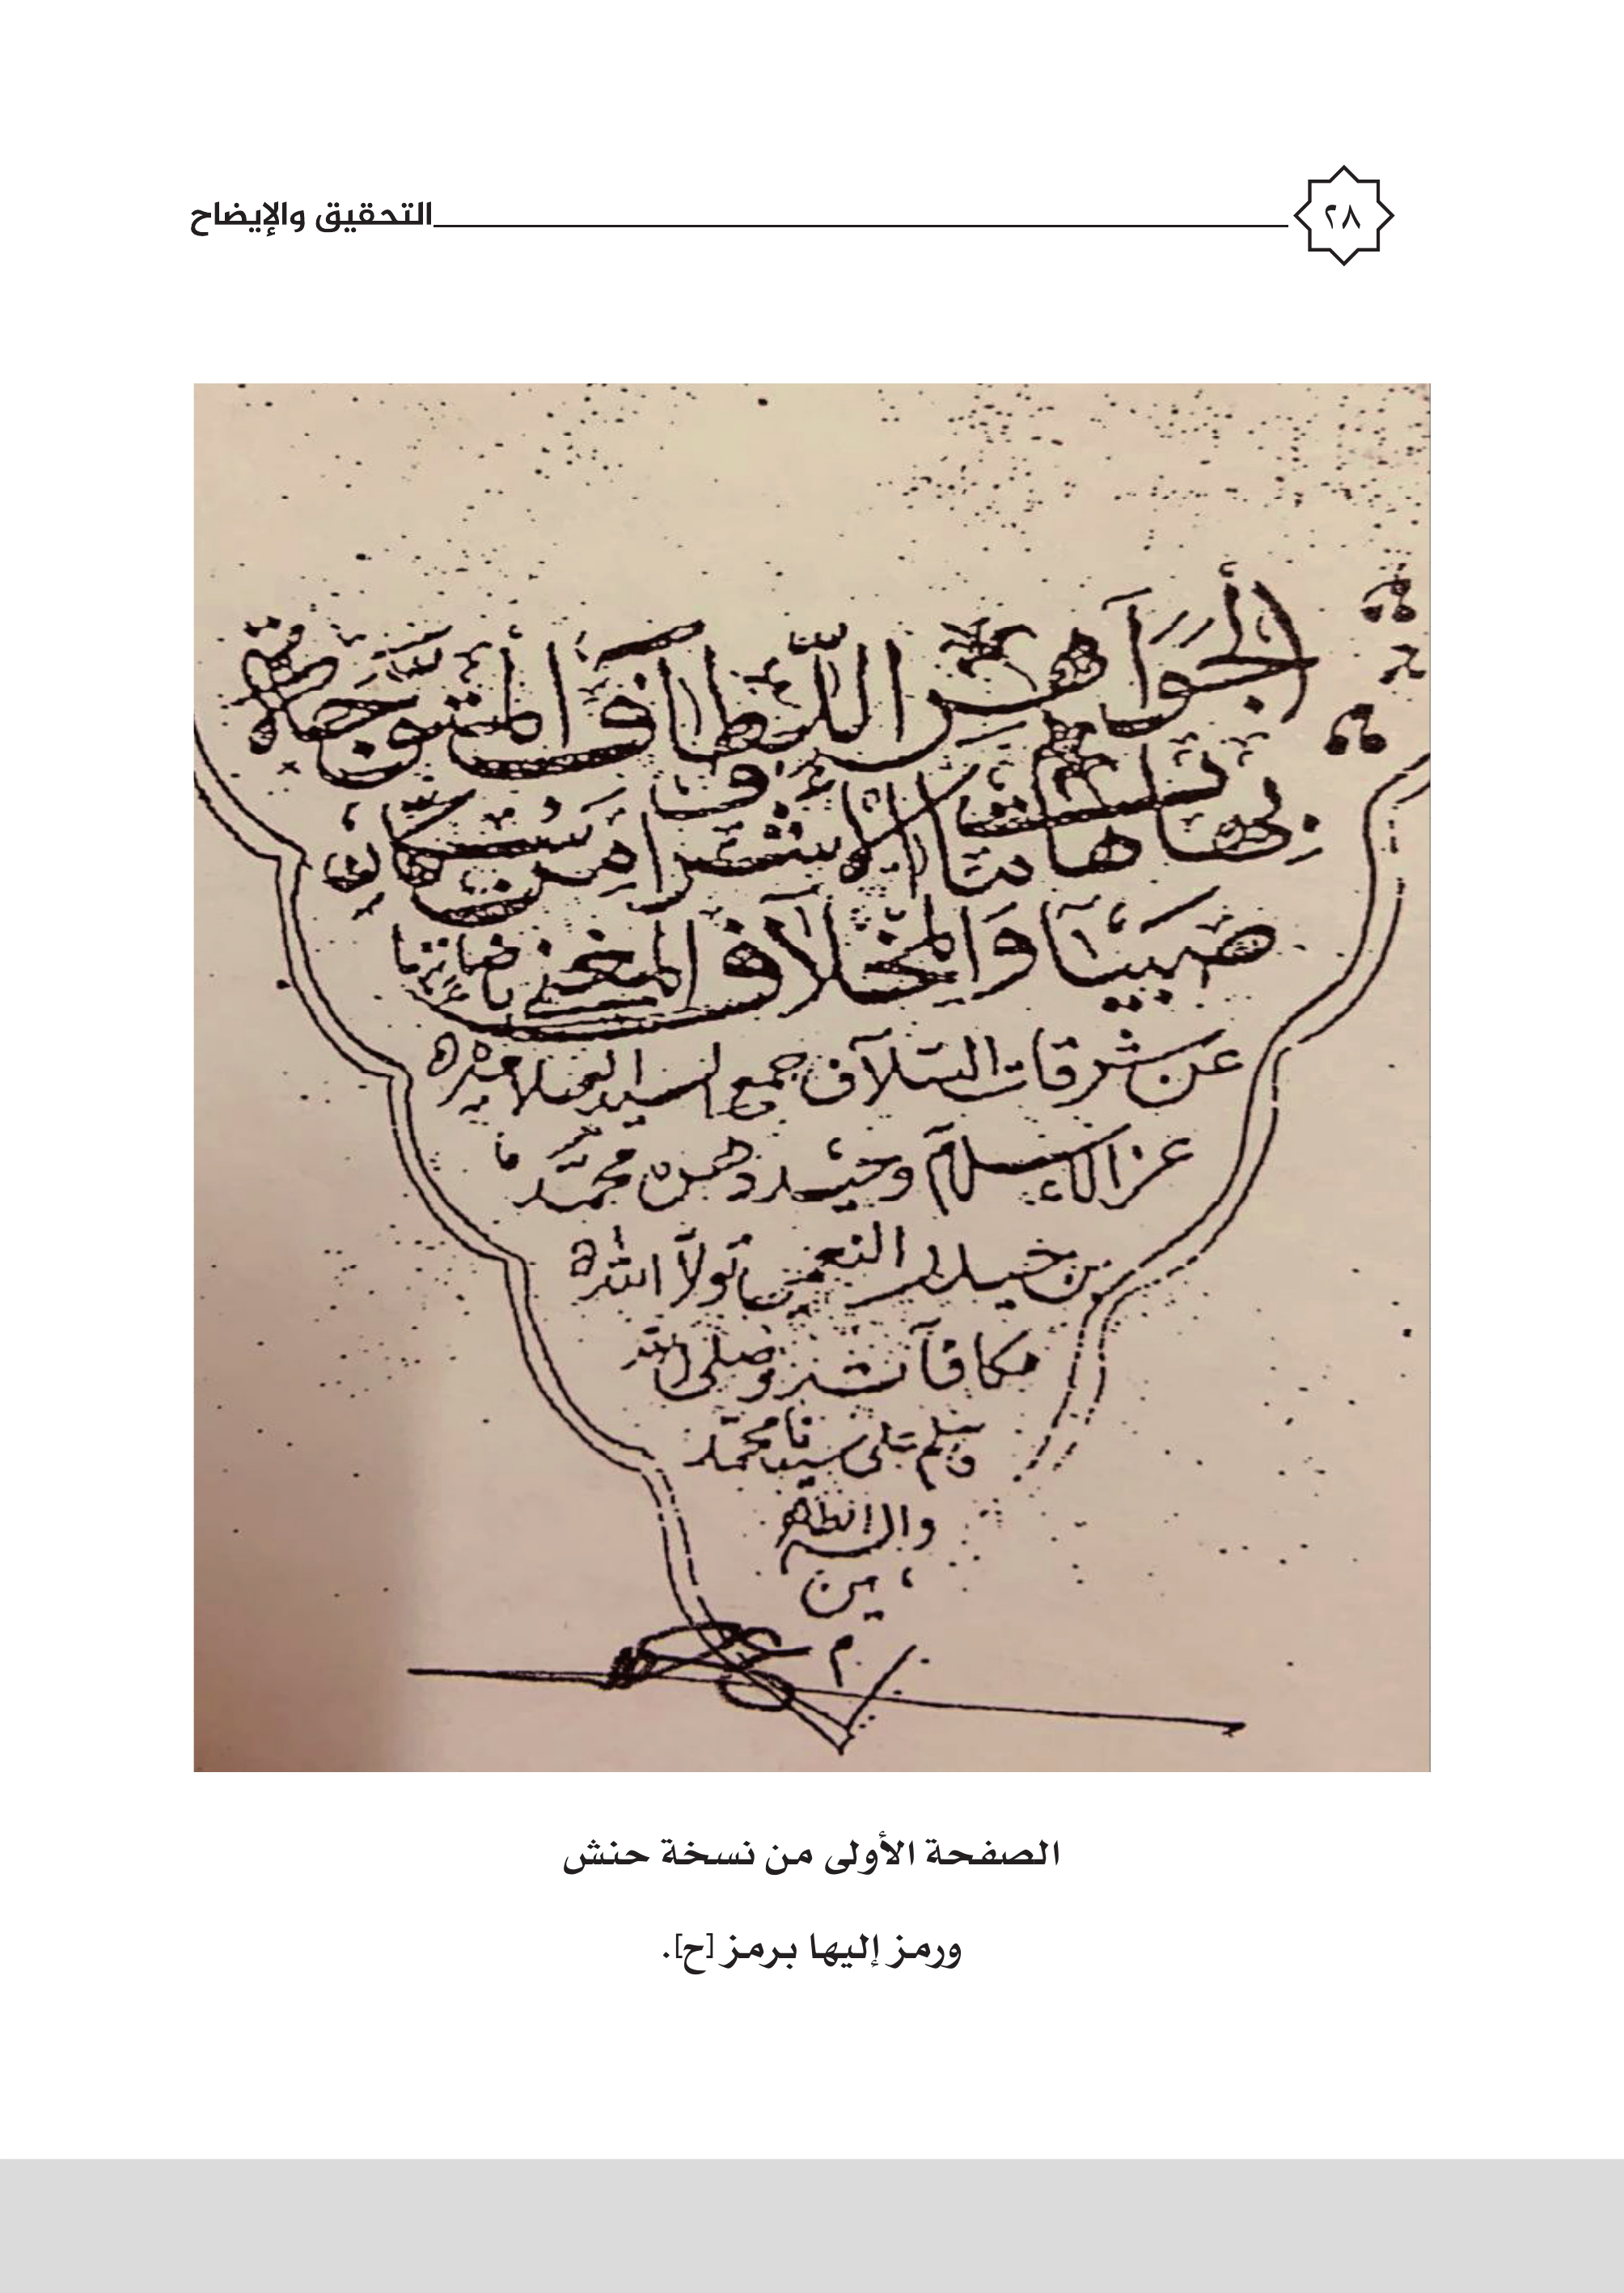 ٢٨
التحقيق والإيضاح
الجواهر اللطاف المتوجة
بهامات الأشراف من سكان
صبيا والمخلاف المغني
عن شرقات السلاف جمع السيد العلامة
عز الإسلام وحيد دهره محمد
بن حيدر النعمي تولا الله
مكافآته وصلى الله
وسلم على سيدنا محمد
واله الطاهر
ين
م
الصفحة الأولى من نسخة حنش
ورمز إليها برمز [ح].